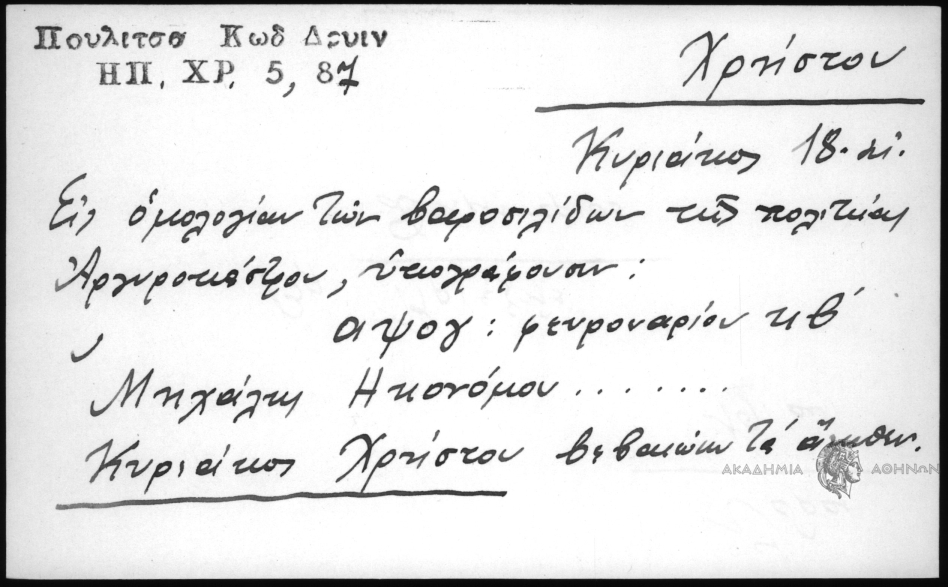 Πουλιτσα Κωδ Δρυιν
ΗΠ. ΧΡ. 5, 87
Χρήστου
Κυριάκος 18. αι.
Εἰς ὁμολογίαν τῶν βαροσιλίδων τῆς πολιτείας
Ἀργυροκάστρου, ὑπογράφουσιν:
αψογ: φευρουαρίου κβ'
Μιχάλης Ηκονόμου ........
Κυριάκος Χρήστου βεβαιώνω τά ἄνωθεν.
ΑΚΑΔΗΜΙΑ ΑΘΗΝΩΝ